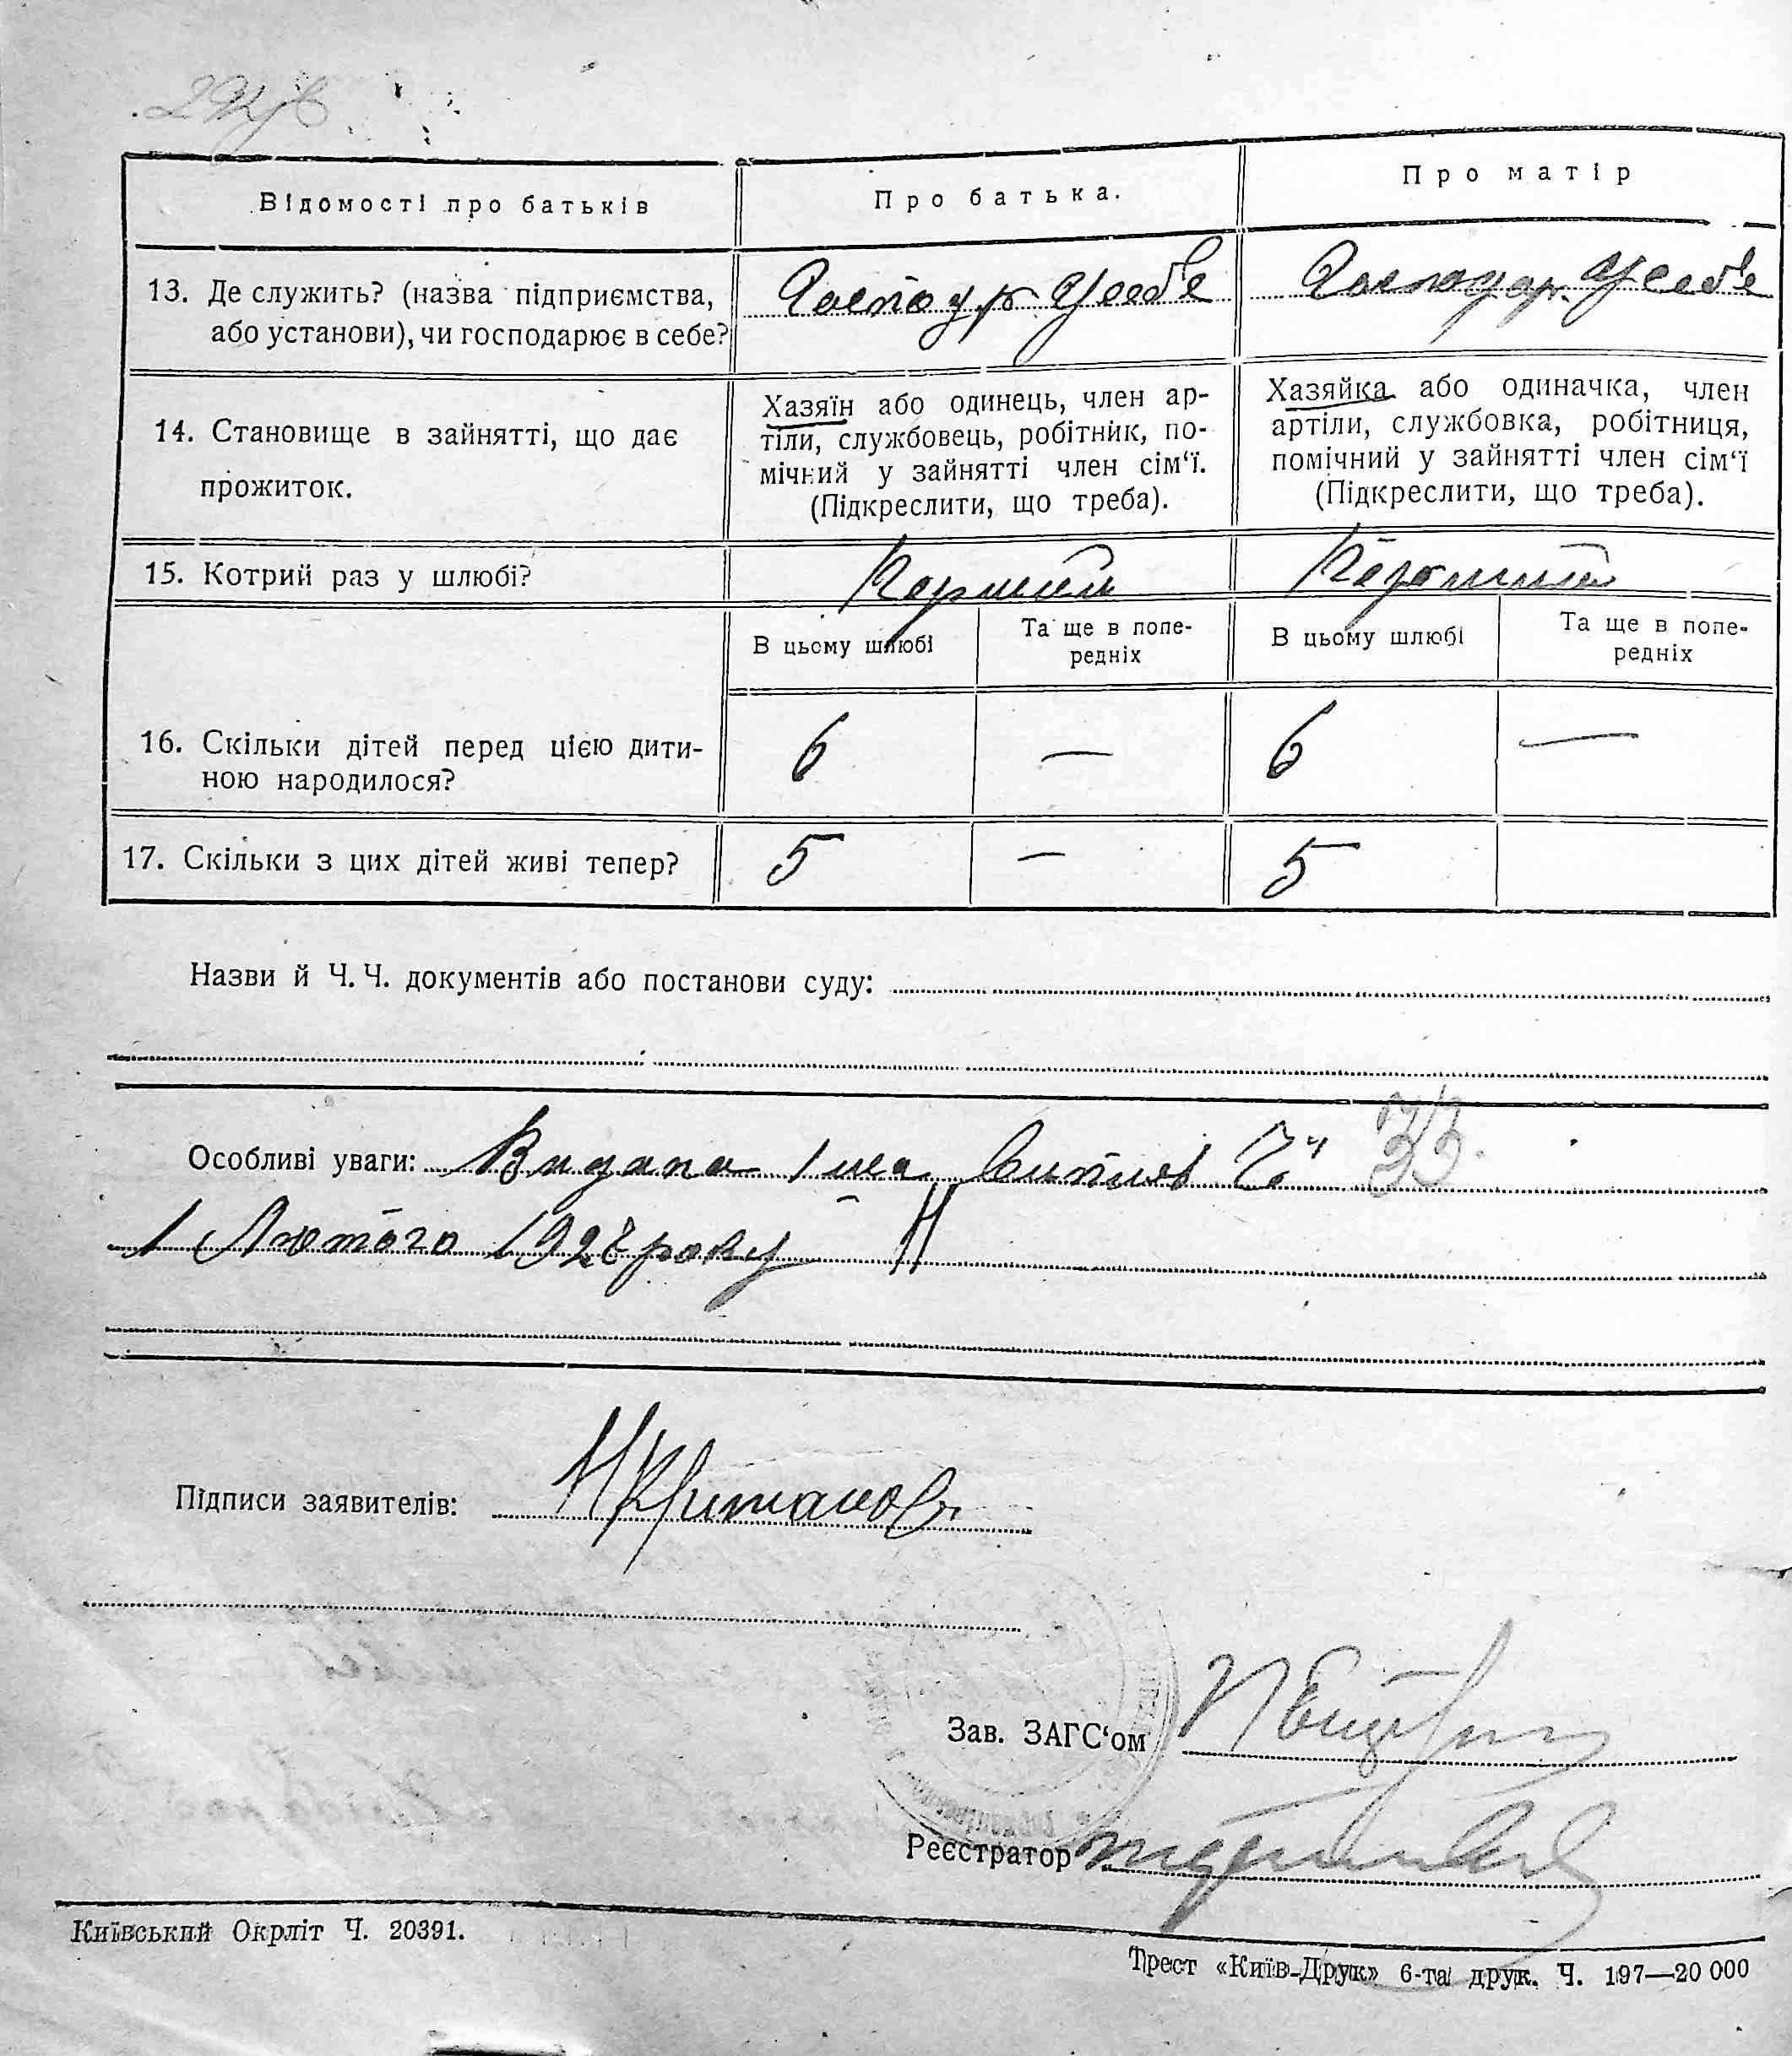 Відомості про батьків
Про батька.
Про матір
13. Де служить? (назва підприємства, або установи), чи господарює в себе?
Господар Усебе
Господар. Усебе
14. Становище в зайнятті, що дає прожиток.
Хазяїн або одинець, член ар-
тіли, службовець, робітник, по-
мічний у зайнятті член сім‘ї.
(Підкреслити, що треба).
Хазяйка або одиначка, член
артіли, службовка, робітниця,
помічний у зайнятті член сім‘ї
(Підкреслити, що треба).
15. Котрий раз у шлюбі?
В цьому шлюбі
Та ще в попе-
редніх
В цьому шлюбі
Та ще в попе-
редніх
16. Скільки дітей перед цією дити-
ною народилося?
6 — 6 —
17. Скільки з цих дітей живі тепер?
5 — 5
Назви й Ч. Ч. документів або постанови суду:
Особливі уваги: Видана 33
1 Лютого 1928 року
Підписи заявителів:
Зав. ЗАГС‘ом
Реєстратор
Київський Окрліт Ч. 20391.
Трест «Київ-Друк» 6-та друк. Ч. 197—20 000